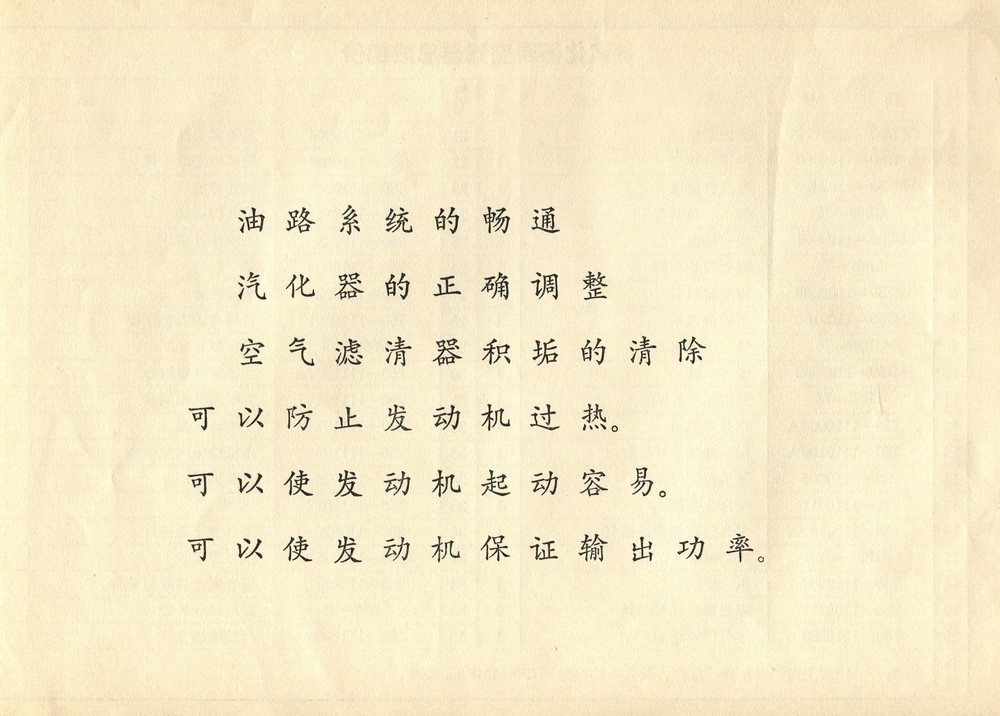 油路系统的畅通
汽化器的正确调整
空气滤清器积垢的清除
可以防止发动机过热。
可以使发动机起动容易。
可以使发动机保证输出功率。